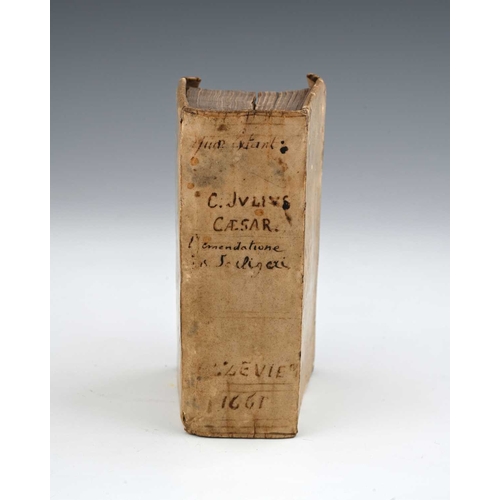 C. JVLIVS
CÆSAR.
emendatione
Scaligeri
ELZEVIER
1661